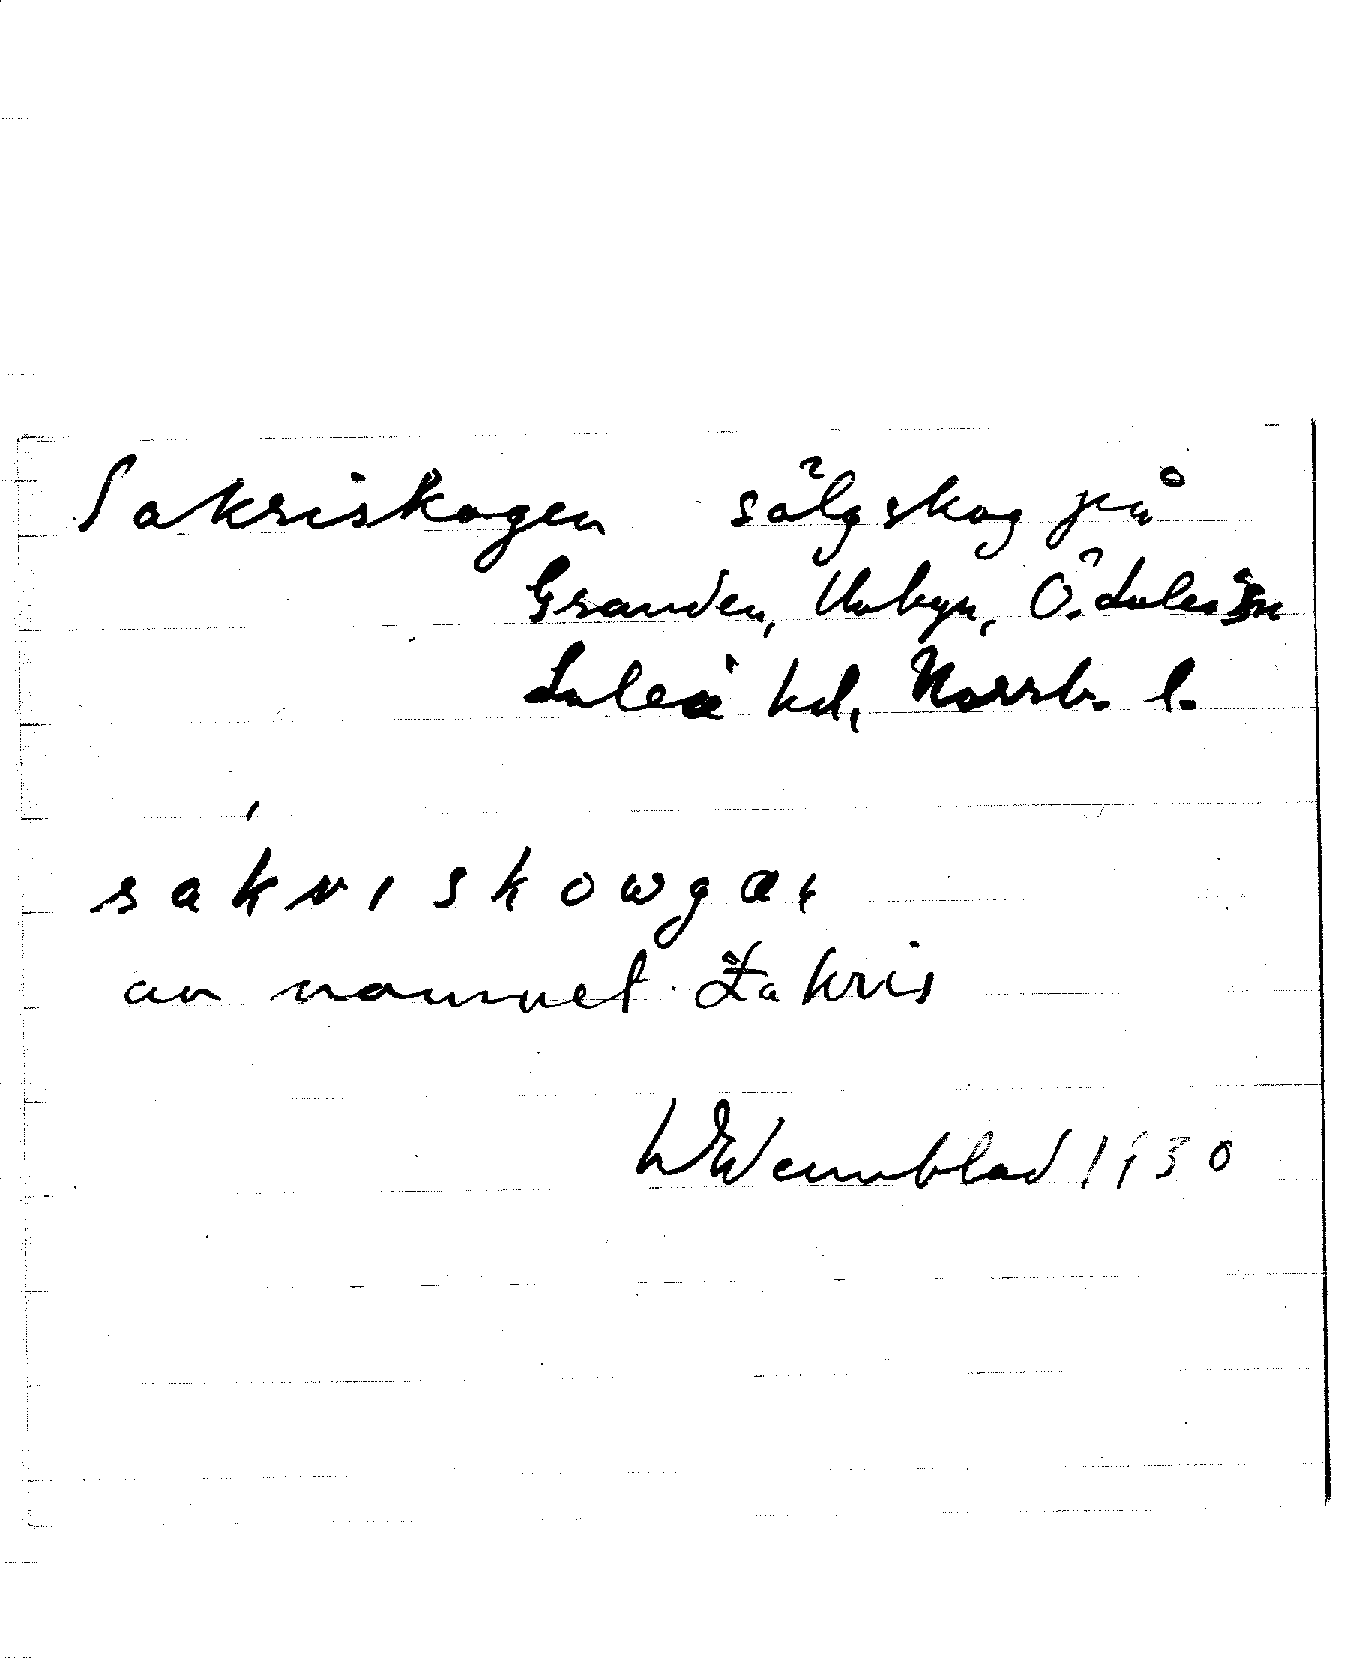 Sakriskogen sälgskog på
Granden, Unbyn, Ö. Luleå sn
Luleå hd, Norrb. l.
sakriskowgæn
av namnet Zakris
W Wennblad 1930